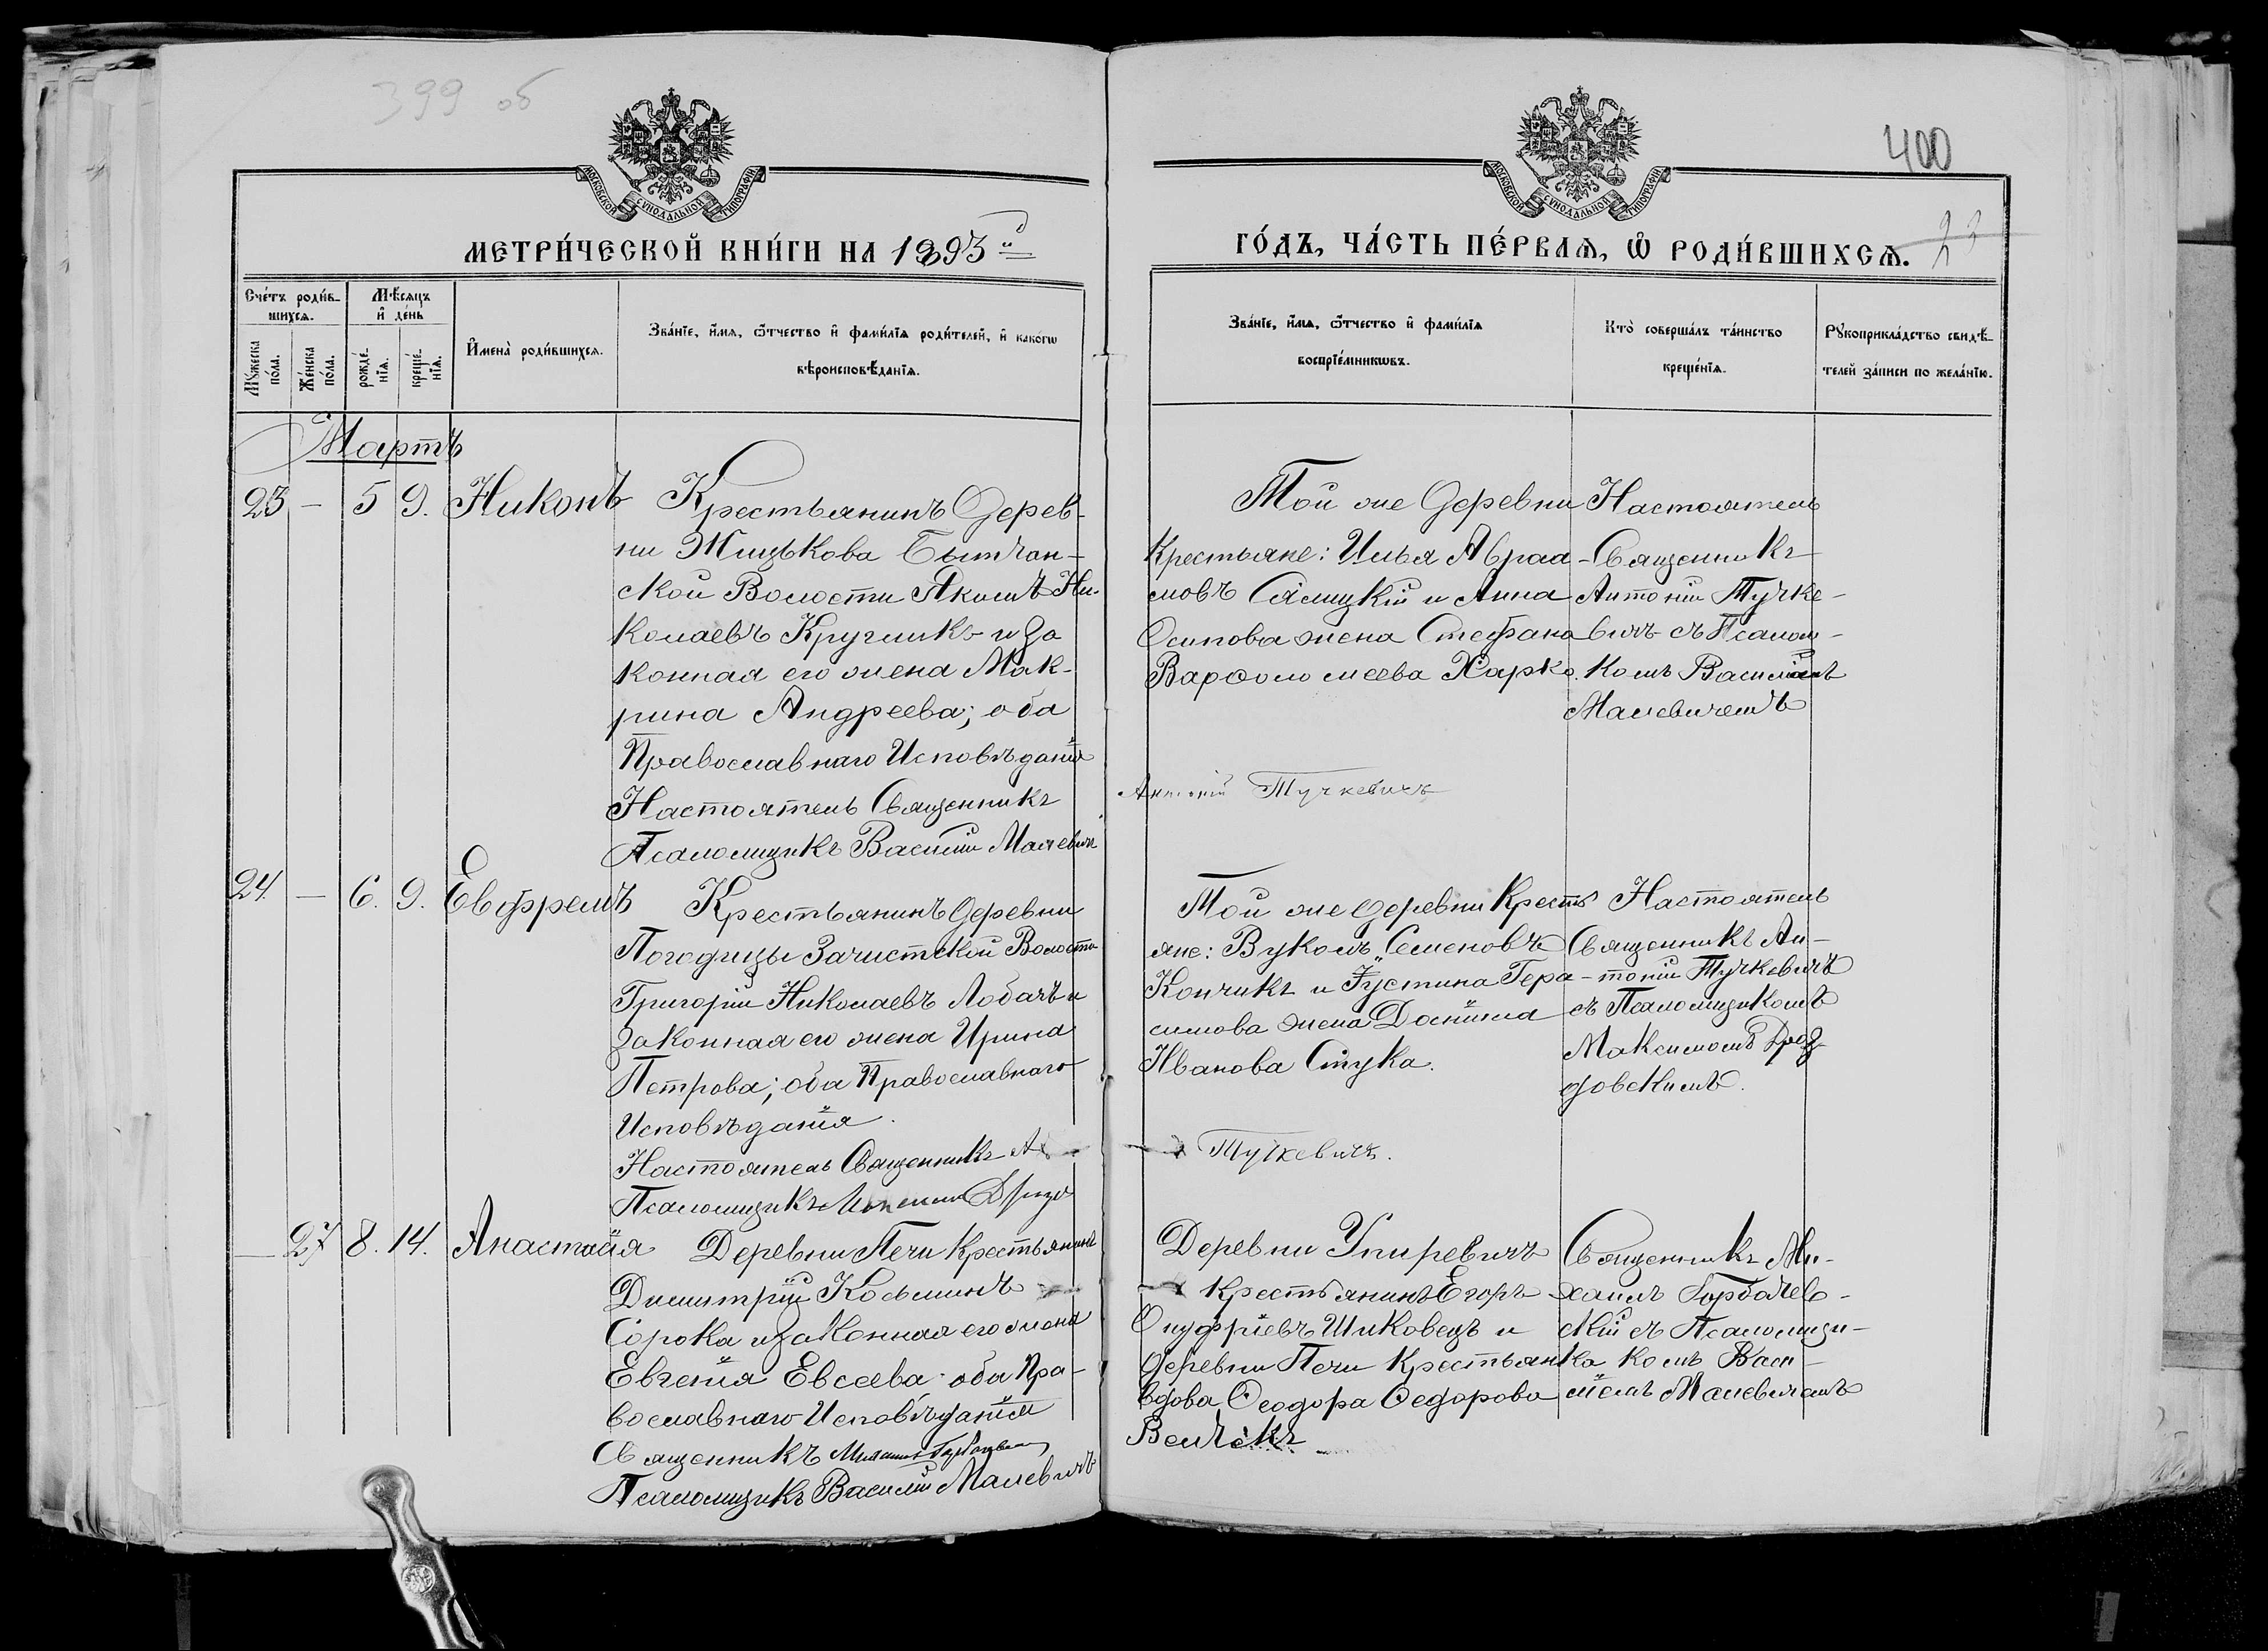 399 об
МОСКОВСКОЙ СѴНОДАЛЬНОЙ ТИПОГРАФІИ
МЕТРИ́ЧЕСКОЙ КНИ́ГИ НА 1893й
Сче́тъ роди́в-
шихся.
Мѣ́сяцъ
и҆ де́нь
Мꙋ́жеска
по́ла.
Же́нска
по́ла.
рожде́-
нїѧ.
креще́-
нїѧ.
И҆мена̀ роди́вшихсѧ.
Зва́нїе, и҆́мѧ, ѻ҆́тчество и҆ фами́лїѧ роди́телей, и҆ како́гѡ
вѣроисповѣ́данїѧ.
Мартъ
23 – 5 9. Никонъ
Крестьянинъ Дерев-
ни Жицькова Бытчан-
ской Волости Якимъ Ни-
колаевъ Кругликъ и За
конная его жена Мак-
рина Андреева; оба
Православнаго Исповѣданія
Настоятель Священникъ
Псаломщикъ Василій Малевичъ
24. – 6. 9. Евфремъ
Крестьянинъ Деревни
Погодицы Зачистской Волости
Григорій Николаевъ Лобачъ и
Законная его жена Ирина
Петрова; оба Православнаго
Исповѣданія.
Настоятель Священникъ
Псаломщикъ
– 27 8. 14. Анастасія
Деревни Печи Крестьянинъ
Димитрій Косьминъ
Сорока и Законная его жена
Евгенія Евсеева оба Пра-
вославнаго Исповѣданія
Священникъ Михаилъ Горбачевскій
Псаломщикъ Василій Малевичъ
400
МОСКОВСКОЙ СѴНОДАЛЬНОЙ ТИПОГРАФІИ
ГО́ДЪ, ЧА́СТЬ ПЕ́РВАѦ, Ѡ҆ РОДИ́ВШИХСѦ.
23
Зва́нїе, и҆́мѧ, ѻ҆́тчество и҆ фами́лїѧ
воспрїе́мникѡвъ.
Кто̀ соверша́лъ та́инство
креще́нїѧ.
Рꙋкоприкла́дство свидѣ́-
телей за́писи по жела́нїю.
Той же Деревни
Крестьяне: Илья Авраа-
мовъ Сялицкій и Анна
Осипова жена Стефана
Варѳоломеева Харко.
Настоятель
Священникъ
Антоній Тучке-
вичъ съ Псалом-
комъ Василіемъ
Малевичемъ
Антоній Тучкевичъ
Той же деревни Кресть
яне: Вуколъ Семеновъ
Кончикъ и Іустина Гера-
симова жена Даніила
Иванова Стука.
Настоятель
Священникъ Ан-
тоній Тучкевичъ
съ Псаломщикомъ
Максимомъ Дроз-
довскимъ.
Тучкевичъ.
Деревни Упиревичъ
Крестьянинъ Егоръ
Онуфріевъ Шиковецъ и
Деревни Печи Крестьянка
вдова Ѳеодора Ѳедорова
Велѣкъ
Священникъ Ми-
хаилъ Горбачев-
скій съ Псаломщи-
комъ Васи-
ліемъ Малевичемъ